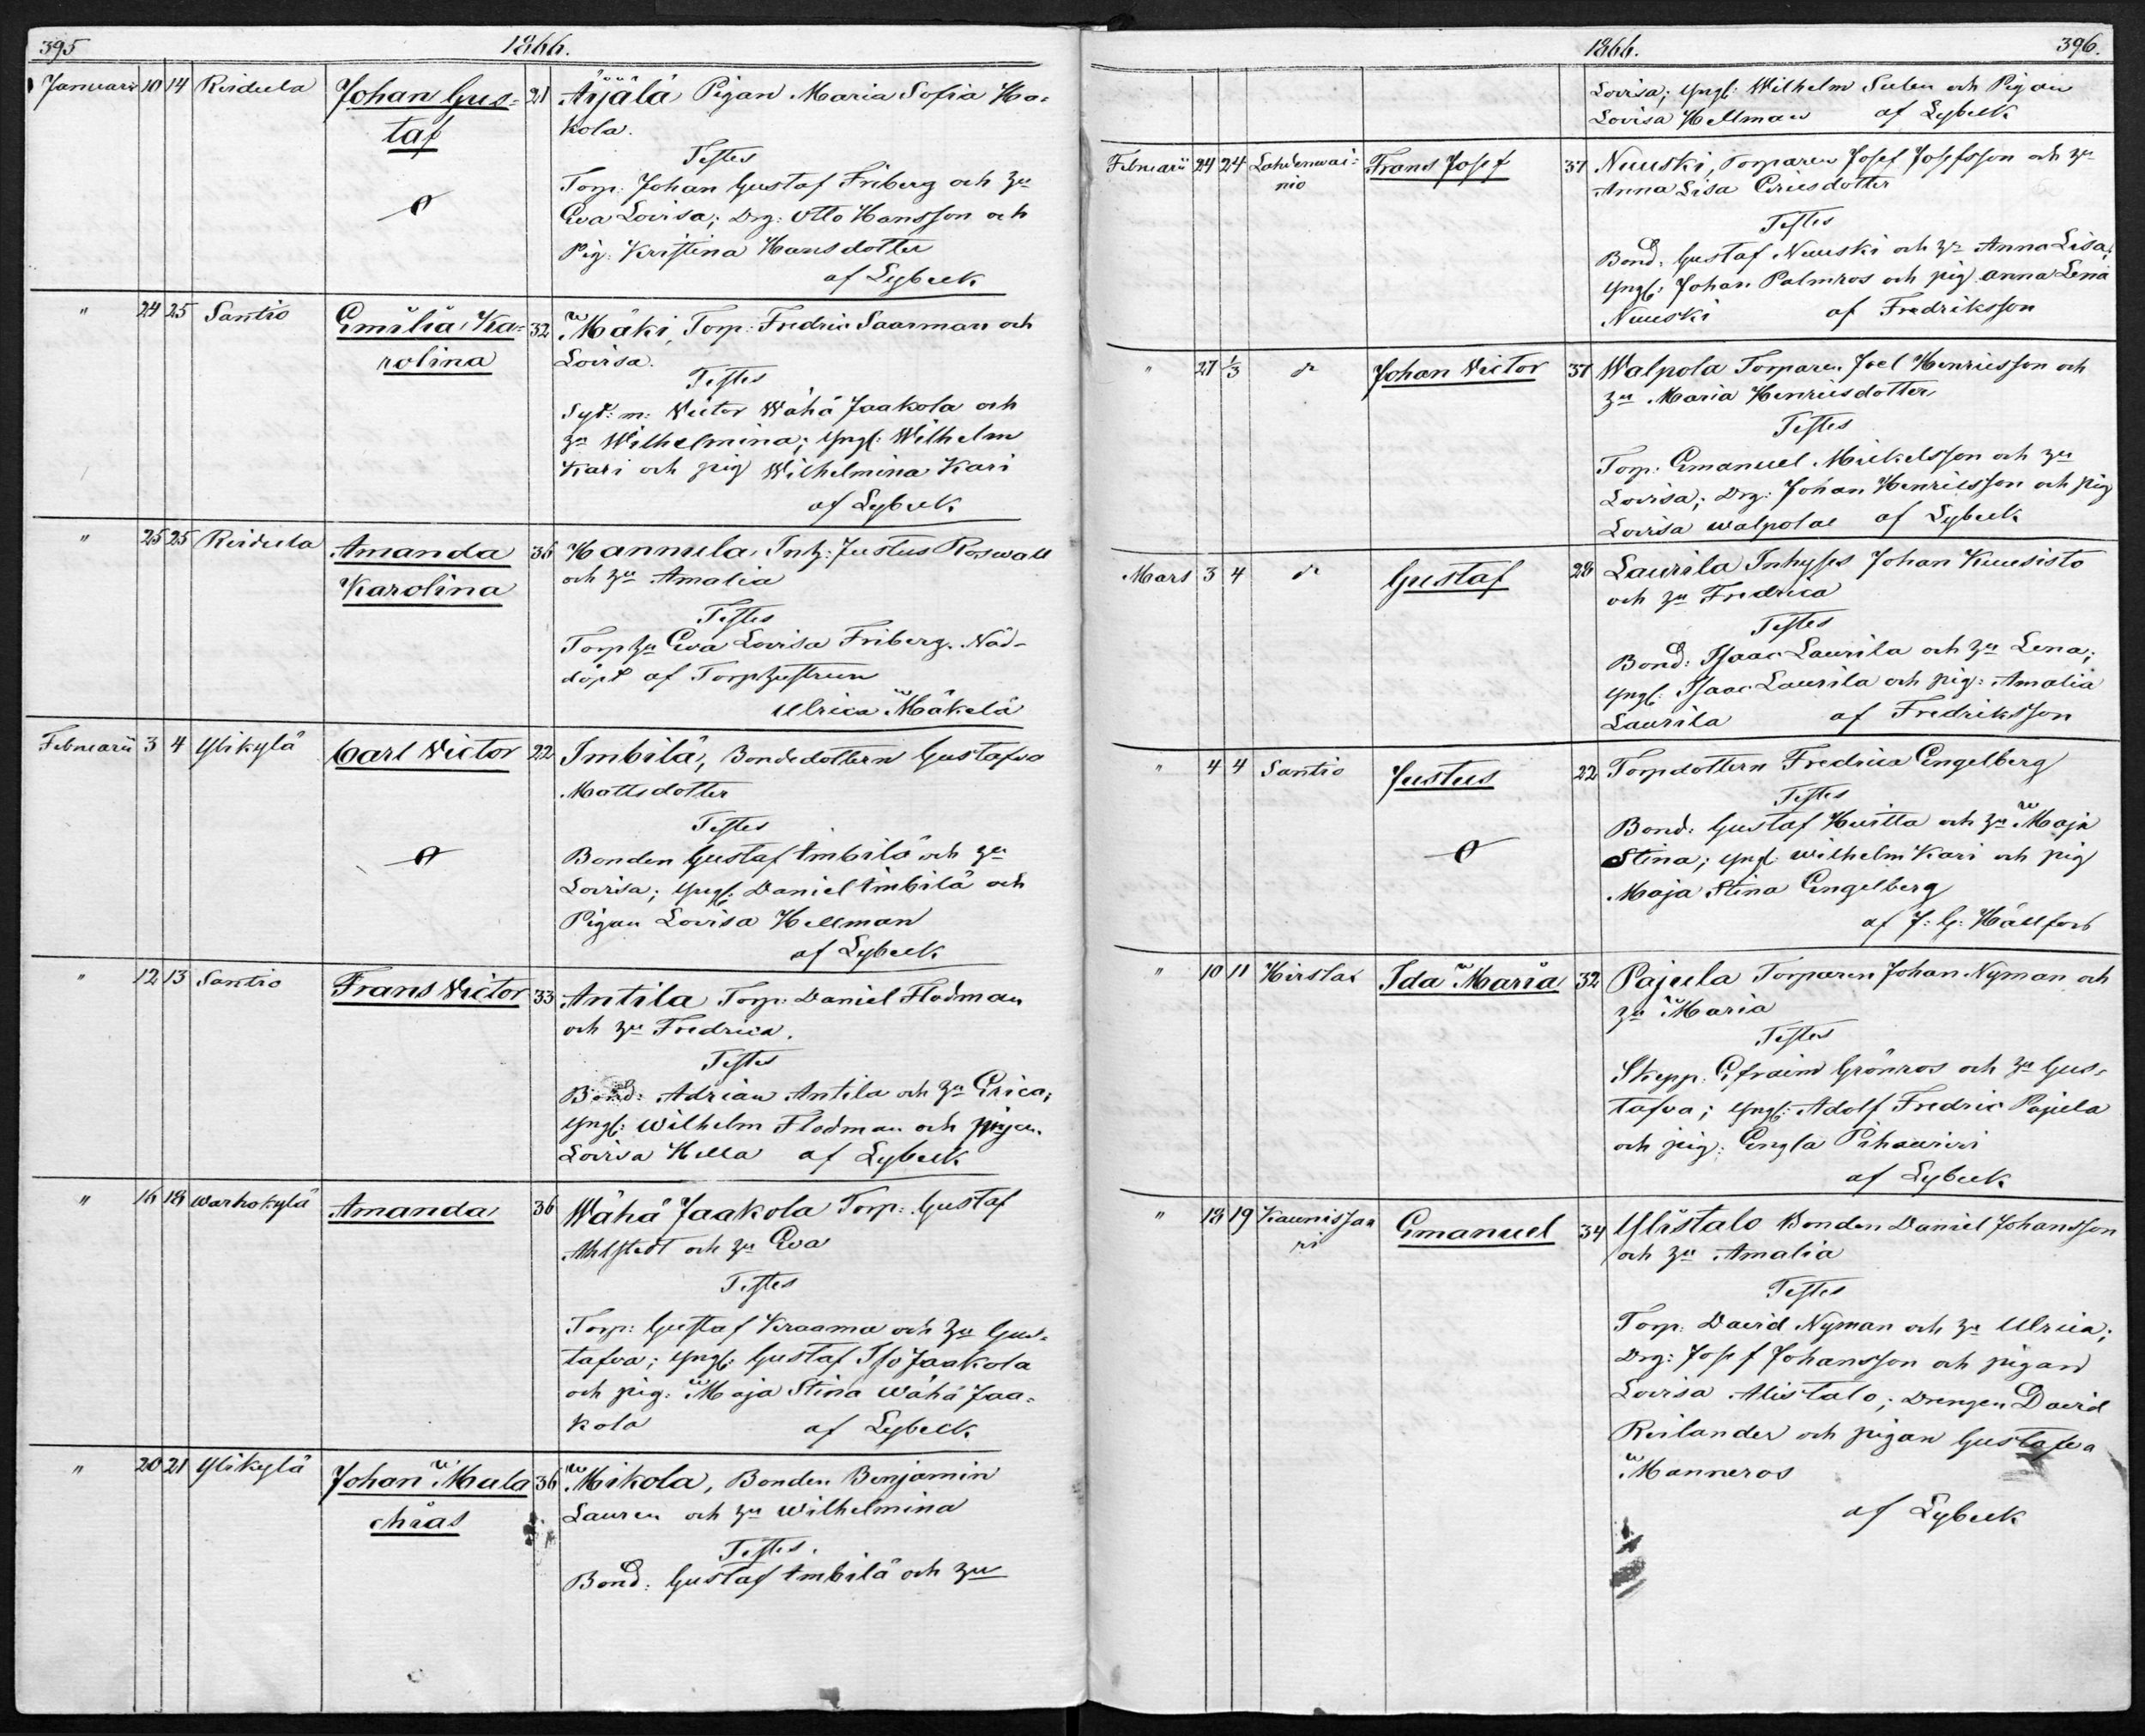 395 1866.
Januarii 10 14 Reidula Johan Gus= 21 Äijälä Pigan Maria Sofia Ha=
taf kola.
Testes
Torp: Johan Gustaf Friberg och hu
Eva Lovisa; Drg: Otto Hansson och
Pig: Kristina Hansdotter
af Lybeck
" 24 25 Santio Emilia Ka= 32 Mäki, Torp: Fredric Saarman och
rolina Lovisa.
Testes
Syt: m: Victor Wähä Jaakola och
hu Wilhelmina; Yngl: Wilhelm
Kari och pig Wilhelmina Kari
af Lybeck
" 25 25 Reidula Amanda 36 Hannula, Inh: Justus Roswall
Karolina och hu Amalia
Testes
Torp hu Eva Lovisa Friberg. Nöd-
döpt af Torphustrun
Ulrica Mäkelä
Februarii 3 4 Ylikylä Carl Victor 22 Imbilä, Bondedottern Gustafva
Mattsdotter
Testes
Bonden Gustaf Imbilä och hu
Lovisa; Yngl: Daniel Imbilä och
Pigan Lovisa Hellman
af Lybeck
" 12 13 Santio Frans Victor 33 Antila Torp: Daniel Flodman
och hu Fredrica.
Testes
Bond: Adrian Antila och hu Erica;
Yngl: Wilhelm Flodman och pigan
Lovisa Hella af Lybeck
" 16 18 Warhokylä Amanda 36 Wähä Jaakola Torp: Gustaf
Ahlstedt och hu Eva
Testes
Torp: Gustaf Kraama och hu Gus=
tafva; Yngl: Gustaf Iso Jaakola
och pig: Maja Stina Wähä Jaa=
kola af Lybeck
" 20 21 Ylikylä Johan Mala 36 Mikola, Bonden Benjamin
chias Lauren och hu Wilhelmina
Testes.
Bond: Gustaf Imbilä och hu
1866. 396.
Lovisa; Yngl: Wilhelm och Pigan
Lovisa Hellman af Lybeck
Februarii 24 24 Lahdenwai= Frans Josef 37 Nuuski, Torparen Josef Josefsson och hu
nio Anna Lisa Ericsdotter
Testes
Bond: Gustaf Nuuski och hu Anna Lisa;
Yngl: Johan Palmros och pig Anna Lena
Nuuski af Fredriksson
" 27 1/3 do Johan Victor 37 Walpola Torparen Joel Henricsson och
hu Maria Henricsdotter
Testes
Torp: Emanuel Mickelsson och hu
Lovisa; Drg: Johan Henricsson och pig
Lovisa Walpola af Lybeck
Mars 3 4 do Gustaf 28 Laurila Inhyses Johan Kuusisto
och hu Fredrica
Testes
Bond: Isaac Laurila och hu Lena;
Yngl: Isaac Laurila och pig: Amalia
Laurila af Fredriksson
" 4 4 Santio Justus 22 Torpdottern Fredrica Engelberg
Testes
Bond: Gustaf Huitta och hu Maja
Stina; Yngl: Wilhelm Kari och pig
Maja Stina Engelberg
af J: G: Hällfors
" 10 11 Hirslax Ida Maria 32 Pajula Torparen Johan Nyman och
hu Maria
Testes
Skepp: Efraim Grönros och hu Gus=
tafva; Yngl: Adolf Fredric Pajula
och pig: Engla Pihawiri
af Lybeck
" 13 19 Kaunissaa Emanuel 34 Ylistalo Bonden Daniel Johansson
ri och hu Amalia
Testes
Torp: David Nyman och hu Ulrica;
Drg: Josef Johansson och pigan
Lovisa Alistalo; Drengen David
Reilander och pigan Gustafva
Manneros
af Lybeck